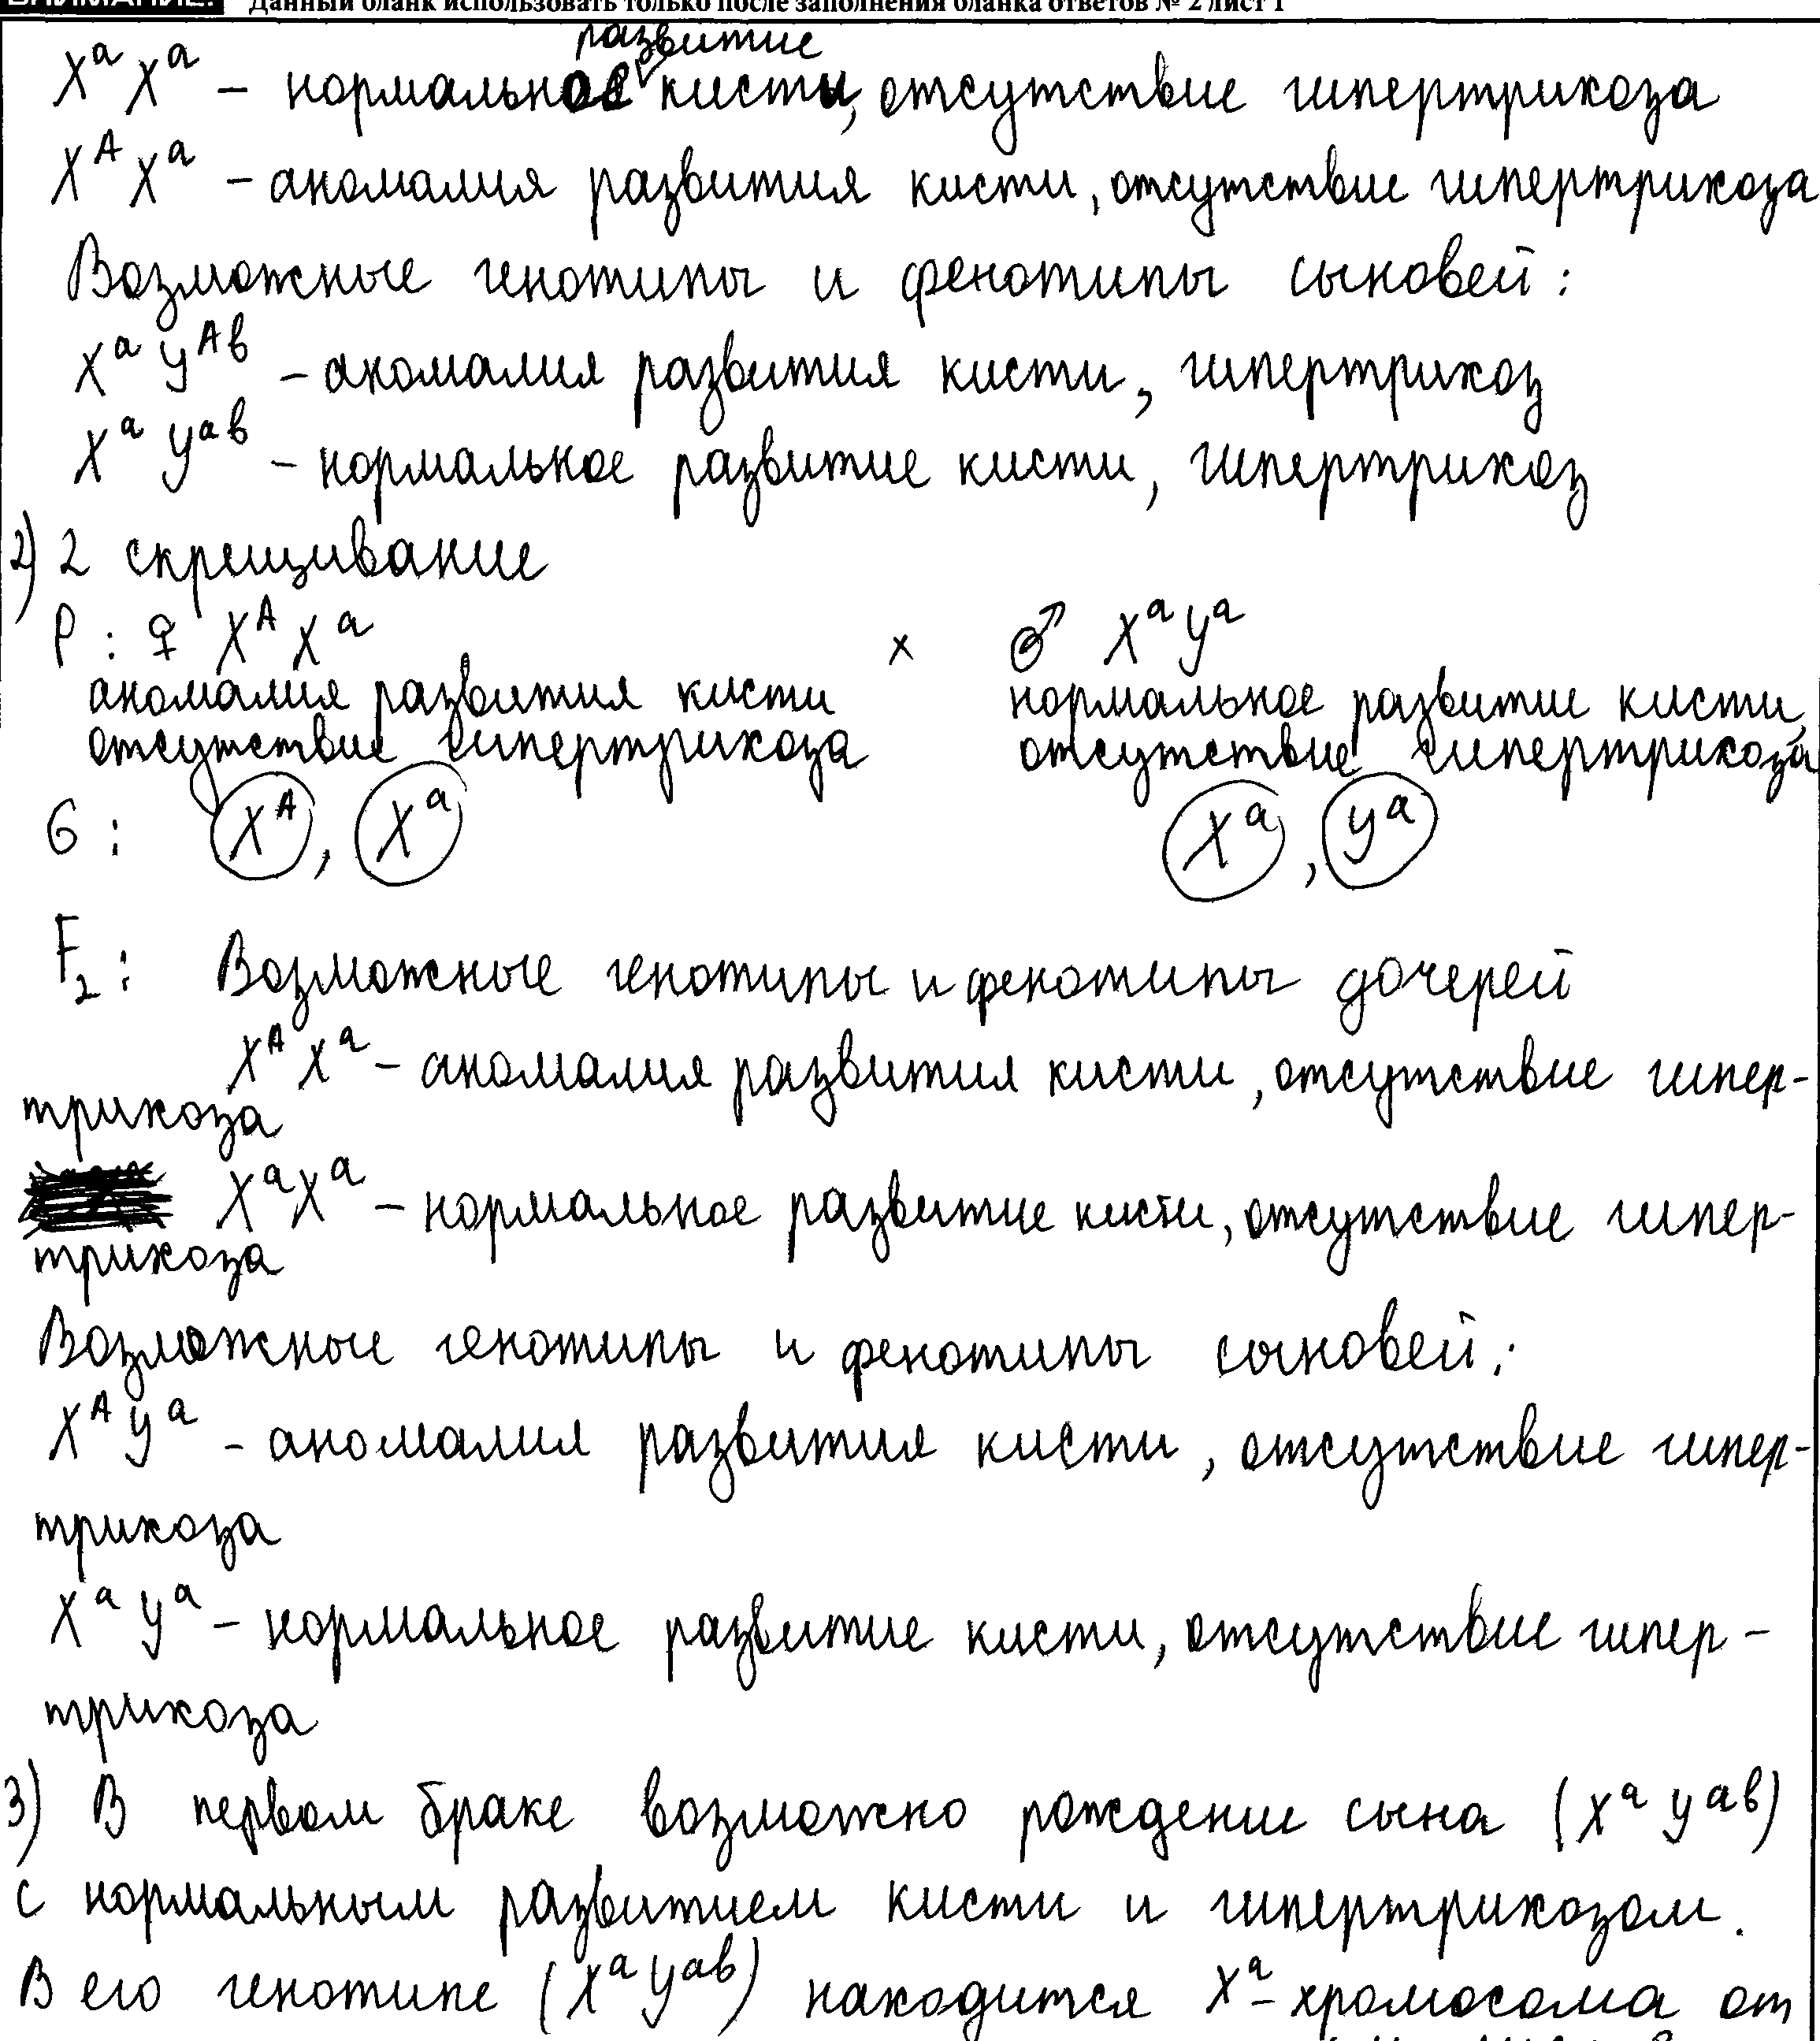 ВНИМАНИЕ! Данный бланк использовать только после заполнения бланка ответов № 2 лист 1
развитие
Xᵃ Xᵃ – нормальное кисти, отсутствие гипертрихоза
Xᴬ Xᵃ – аномалия развития кисти, отсутствие гипертрихоза
Возможные генотипы и фенотипы сыновей:
Xᵃ Yᴬᵇ – аномалия развития кисти, гипертрихоз
Xᵃ Yᵃᵇ – нормальное развитие кисти, гипертрихоз
2) 2 скрещивание
P: ♀ Xᴬ Xᵃ × ♂ Xᵃ Yᵃ
аномалия развития кисти нормальное развитие кисти,
отсутствие гипертрихоза отсутствие гипертрихоза
G: Xᴬ, Xᵃ Xᵃ, Yᵃ
F₂: Возможные генотипы и фенотипы дочерей
Xᴬ Xᵃ – аномалия развития кисти, отсутствие гипер-
трихоза
Xᵃ Xᵃ – нормальное развитие кисти, отсутствие гипер-
трихоза
Возможные генотипы и фенотипы сыновей:
Xᴬ Yᵃ – аномалия развития кисти, отсутствие гипер-
трихоза
Xᵃ Yᵃ – нормальное развитие кисти, отсутствие гипер-
трихоза
3) В первом браке возможно рождение сына (Xᵃ Yᵃᵇ)
с нормальным развитием кисти и гипертрихозом.
В его генотипе (Xᵃ Yᵃᵇ) находится Xᵃ-хромосома от